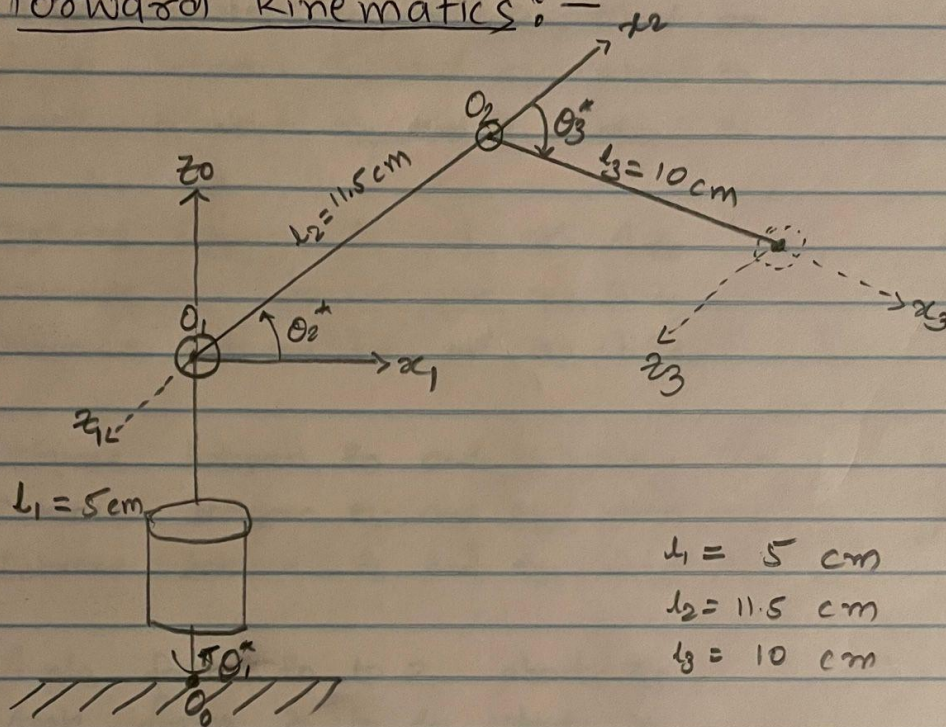 Forward Kinematics:-
x2
O2
θ3*
l3 = 10cm
l2 = 11.5cm
z0
O1
θ2*
x1
x3
z3
z1
l1 = 5cm
l1 = 5 cm
l2 = 11.5 cm
l3 = 10 cm
θ1*
O0